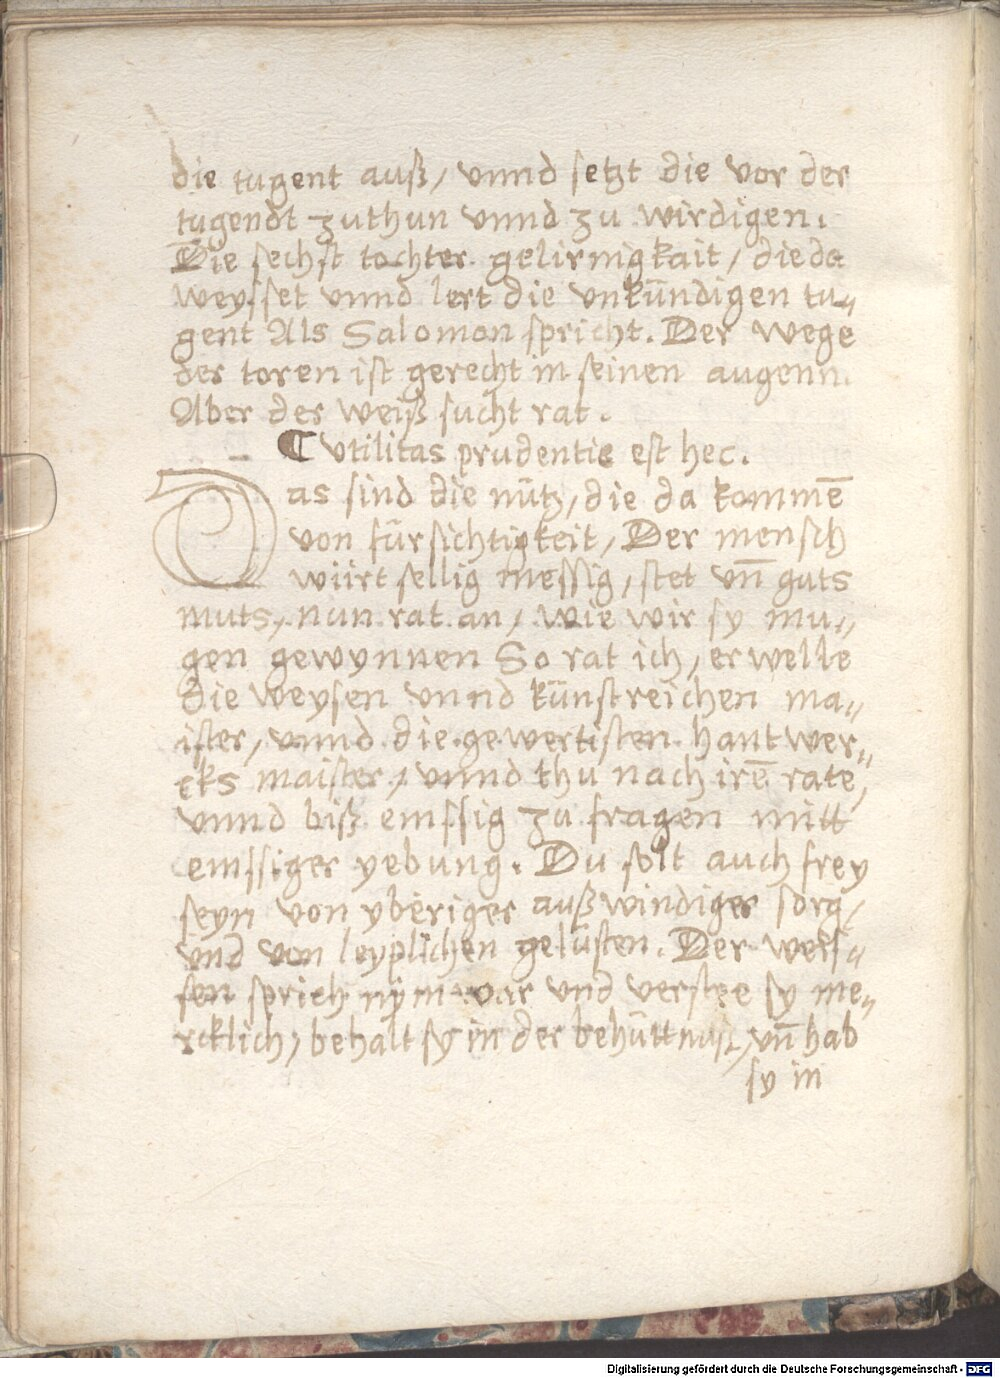 die tugent auß/ vnnd setzt die vor der
tugendt zuthun vnnd zu wirdigen.
Die sechst tochter gelirnigkait/ die da
weysset vnnd lert die vnkündigen tu„
gent Als Salomon spricht. Der wege
der toren ist gerecht in seinen augenn.
Aber der weiß sucht rat.
¶ Vtilitas prudentie est hec.
Das sind die nütz/ die da kommē
von fürsichtigkeit/ Der mensch
wiirt sellig messig/ stet vn̄ guts
muts/ nun rat an/ wie wir sy mu„
gen gewynnen So rat ich/ erwelle
die weysen vnnd künstreichen ma„
ister/ vnnd die gewertisten hantwer„
cks maister/ vnnd thu nach irē rate/
vnnd biß emssig zu fragen mitt
emssiger yebung. Du solt auch frey
seyn von yberiger außwindiger sorg/
vnd von leyplichen gelüsten. Der weis„
sen sprich nym war vnd verstee sy me„
rcklich/ behalt sy in der behüttnuß/ vn̄ hab
sy in
Digitalisierung gefördert durch die Deutsche Forschungsgemeinschaft - DFG